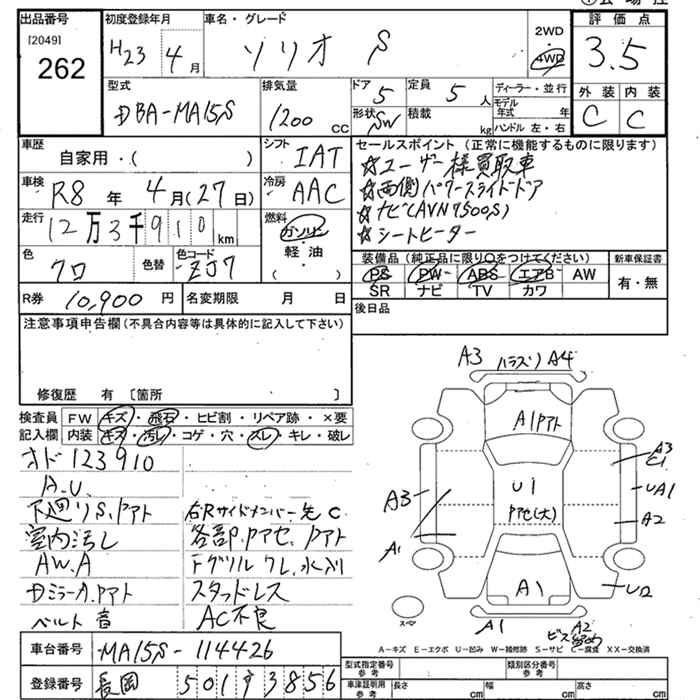 出品番号
[2049]
262
初度登録年月
H23 4月
車名・グレード
ソリオ S
2WD
4WD
評価点
3.5
外装 内装
C C
型式
DBA-MA15S
排気量
1200 CC
ドア 5
形状 SW
定員 5 人
積載 kg
ディーラー・並行
モデル年式 年
ハンドル 左・右
車歴
自家用・( )
シフト IAT
車検 R8 年 4月(27日)
冷房 AAC
走行 12万3千910 km
燃料 ガソリン
軽油
( )
色 クロ
色替
色コード ZJ7
R券 10,900 円
名変期限 月 日
セールスポイント (正常に機能するものに限ります)
☆ユーザー様買取車
☆両側パワースライドドア
☆ナビ(AVN7500S)
☆シートヒーター
装備品 (純正品に限り○をつけてください)
新車保証書
PS PW ABS エアB AW
SR ナビ TV カワ
有・無
後日品
注意事項申告欄 (不具合内容等は具体的に記入して下さい)
修復歴 有 〔箇所 〕
検査員 FW キズ・飛石・ヒビ割・リペア跡・×要
記入欄 内装 キズ・汚レ・コゲ・穴・スレ・キレ・破レ
オド 123910
A.U.
下廻りS.Pアト 右Rサイドメンバー先C
室内汚し 各部.Pアセ.Pアト
AW.A Fグリル ワレ.水入り
Dミラーカ.Pアト スタッドレス
ベルト音 AC不良
車台番号 MA15S-114426
登録番号 長岡 501 ヲ 3856
A3 ハラズリ A4
A1Pアト
A3
C1
U1
Pアセ(大)
UA1
A2
A3
A1
A1
U2
スペア
A1
ビス A2
A－キズ E－エクボ U－凹み W－補修跡 S－サビ C－腐食 XX－交換済
型式指定番号
参考
類別区分番号
参考
車体証明用
参考
長さ cm 幅 cm 高さ cm